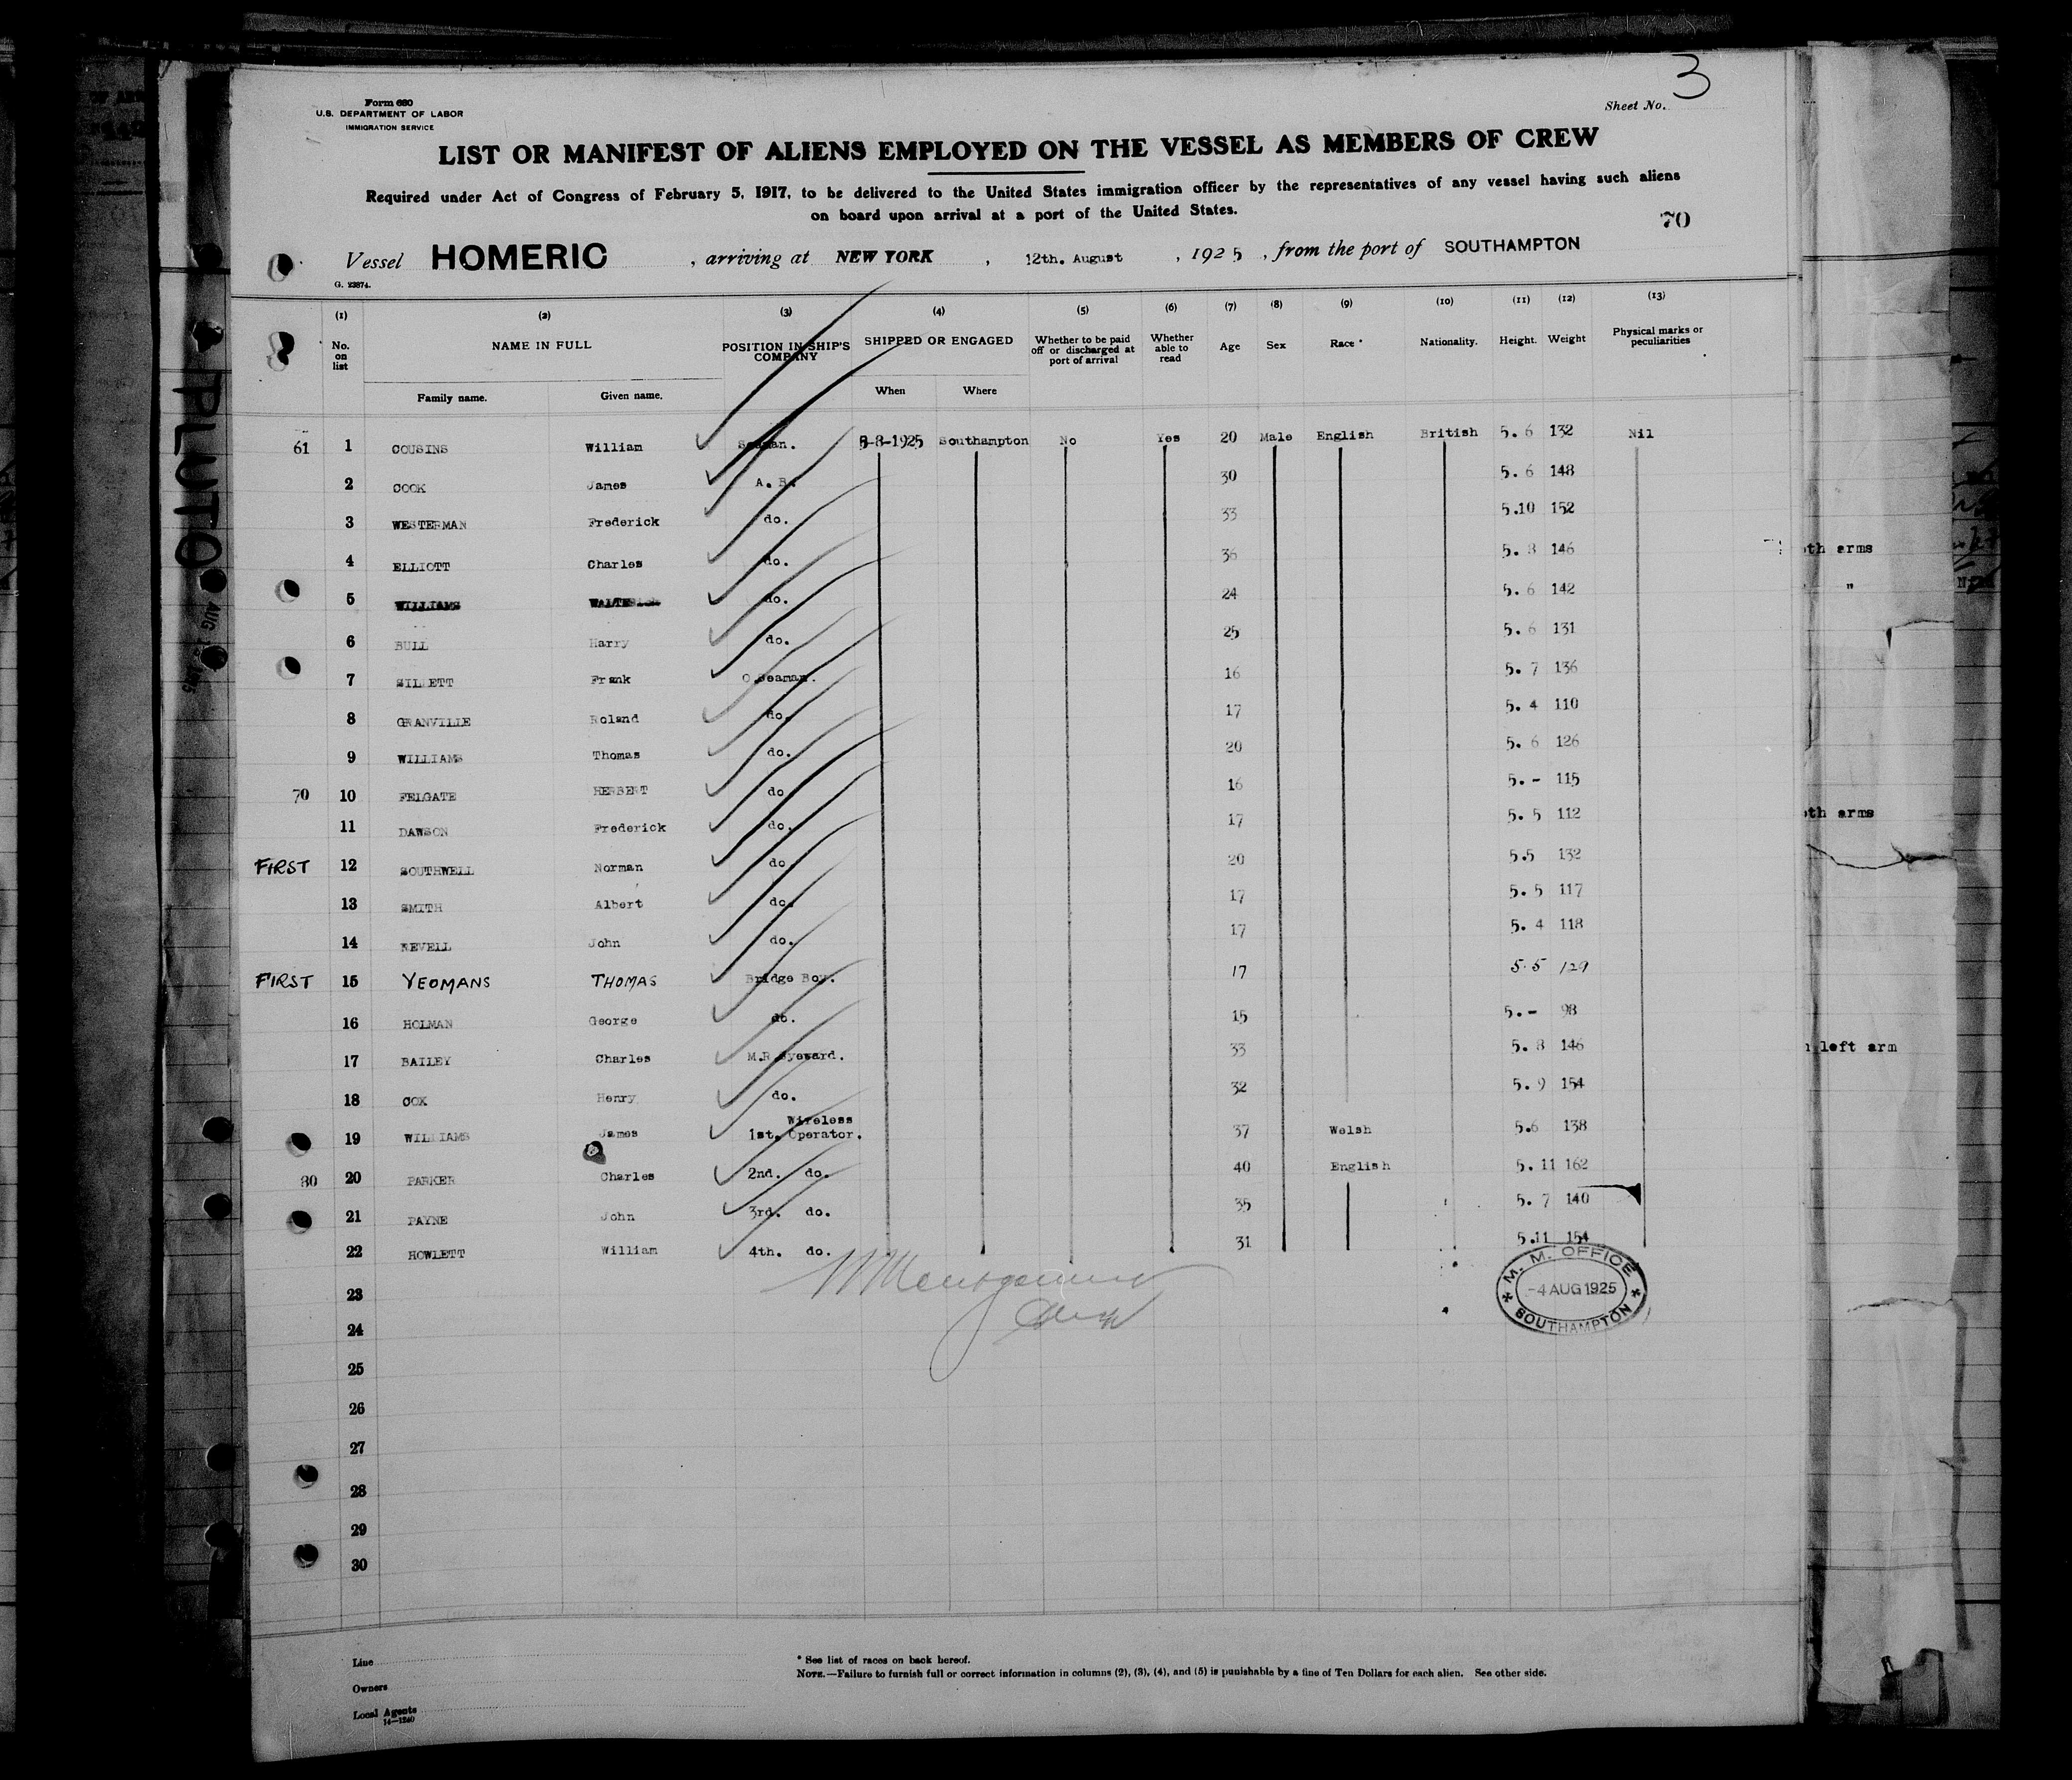 3
Form 680
U.S. DEPARTMENT OF LABOR
IMMIGRATION SERVICE
Sheet No.
LIST OR MANIFEST OF ALIENS EMPLOYED ON THE VESSEL AS MEMBERS OF CREW
Required under Act of Congress of February 5, 1917, to be delivered to the United States immigration officer by the representatives of any vessel having such aliens
on board upon arrival at a port of the United States.
70
Vessel HOMERIC , arriving at NEW YORK , 12th. August , 1925 , from the port of SOUTHAMPTON
G. 23874.
(1) (2) (3) (4) (5) (6) (7) (8) (9) (10) (11) (12) (13)
No. on list NAME IN FULL POSITION IN SHIP'S COMPANY SHIPPED OR ENGAGED Whether to be paid off or discharged at port of arrival Whether able to read Age Sex Race* Nationality. Height. Weight Physical marks or peculiarities
Family name. Given name. When Where
61 1 COUSINS William Seaman. 5-8-1925 Southampton No Yes 20 Male English British 5. 6 132 Nil
2 COOK James A. B. 30 5. 6 148
3 WESTERMAN Frederick do. 33 5.10 152
4 ELLIOTT Charles do. 36 5. 8 146
5 WILLIAMS do. 24 5. 6 142
6 BULL Harry do. 25 5. 6 131
7 SILLETT Frank O.Seaman. 16 5. 7 136
8 GRANVILLE Roland do. 17 5. 4 110
9 WILLIAMS Thomas do. 20 5. 6 126
70 10 FELGATE HERBERT do 16 5. - 115
11 DAWSON Frederick do. 17 5. 5 112
FIRST 12 SOUTHWELL Norman do 20 5.5 132
13 SMITH Albert do. 17 5. 5 117
14 John do. 17 5. 4 118
FIRST 15 YEOMANS THOMAS Bridge Boy. 17 5.5 129
16 HOLMAN George do. 15 5. - 98
17 BAILEY Charles M.R.Syeward. 33 5. 8 146
18 COX Henry do. 32 5. 9 154
19 WILLIAMS James 1st. Wireless Operator. 37 Welsh 5.6 138
80 20 PARKER Charles 2nd. do. 40 English 5. 11 162
21 PAYNE John 3rd. do. 35 5. 7 140
22 HOWLETT William 4th. do. 31 5.11 154
23
24
25
26
27
28
29
30
M. M. OFFICE
-4 AUG 1925
SOUTHAMPTON
Line
Owners
Local Agents
14-1240
* See list of races on back hereof.
NOTE.—Failure to furnish full or correct information in columns (2), (3), (4), and (5) is punishable by a fine of Ten Dollars for each alien. See other side.
PLUTO
AUG
oth arms
"
oth arms
left arm